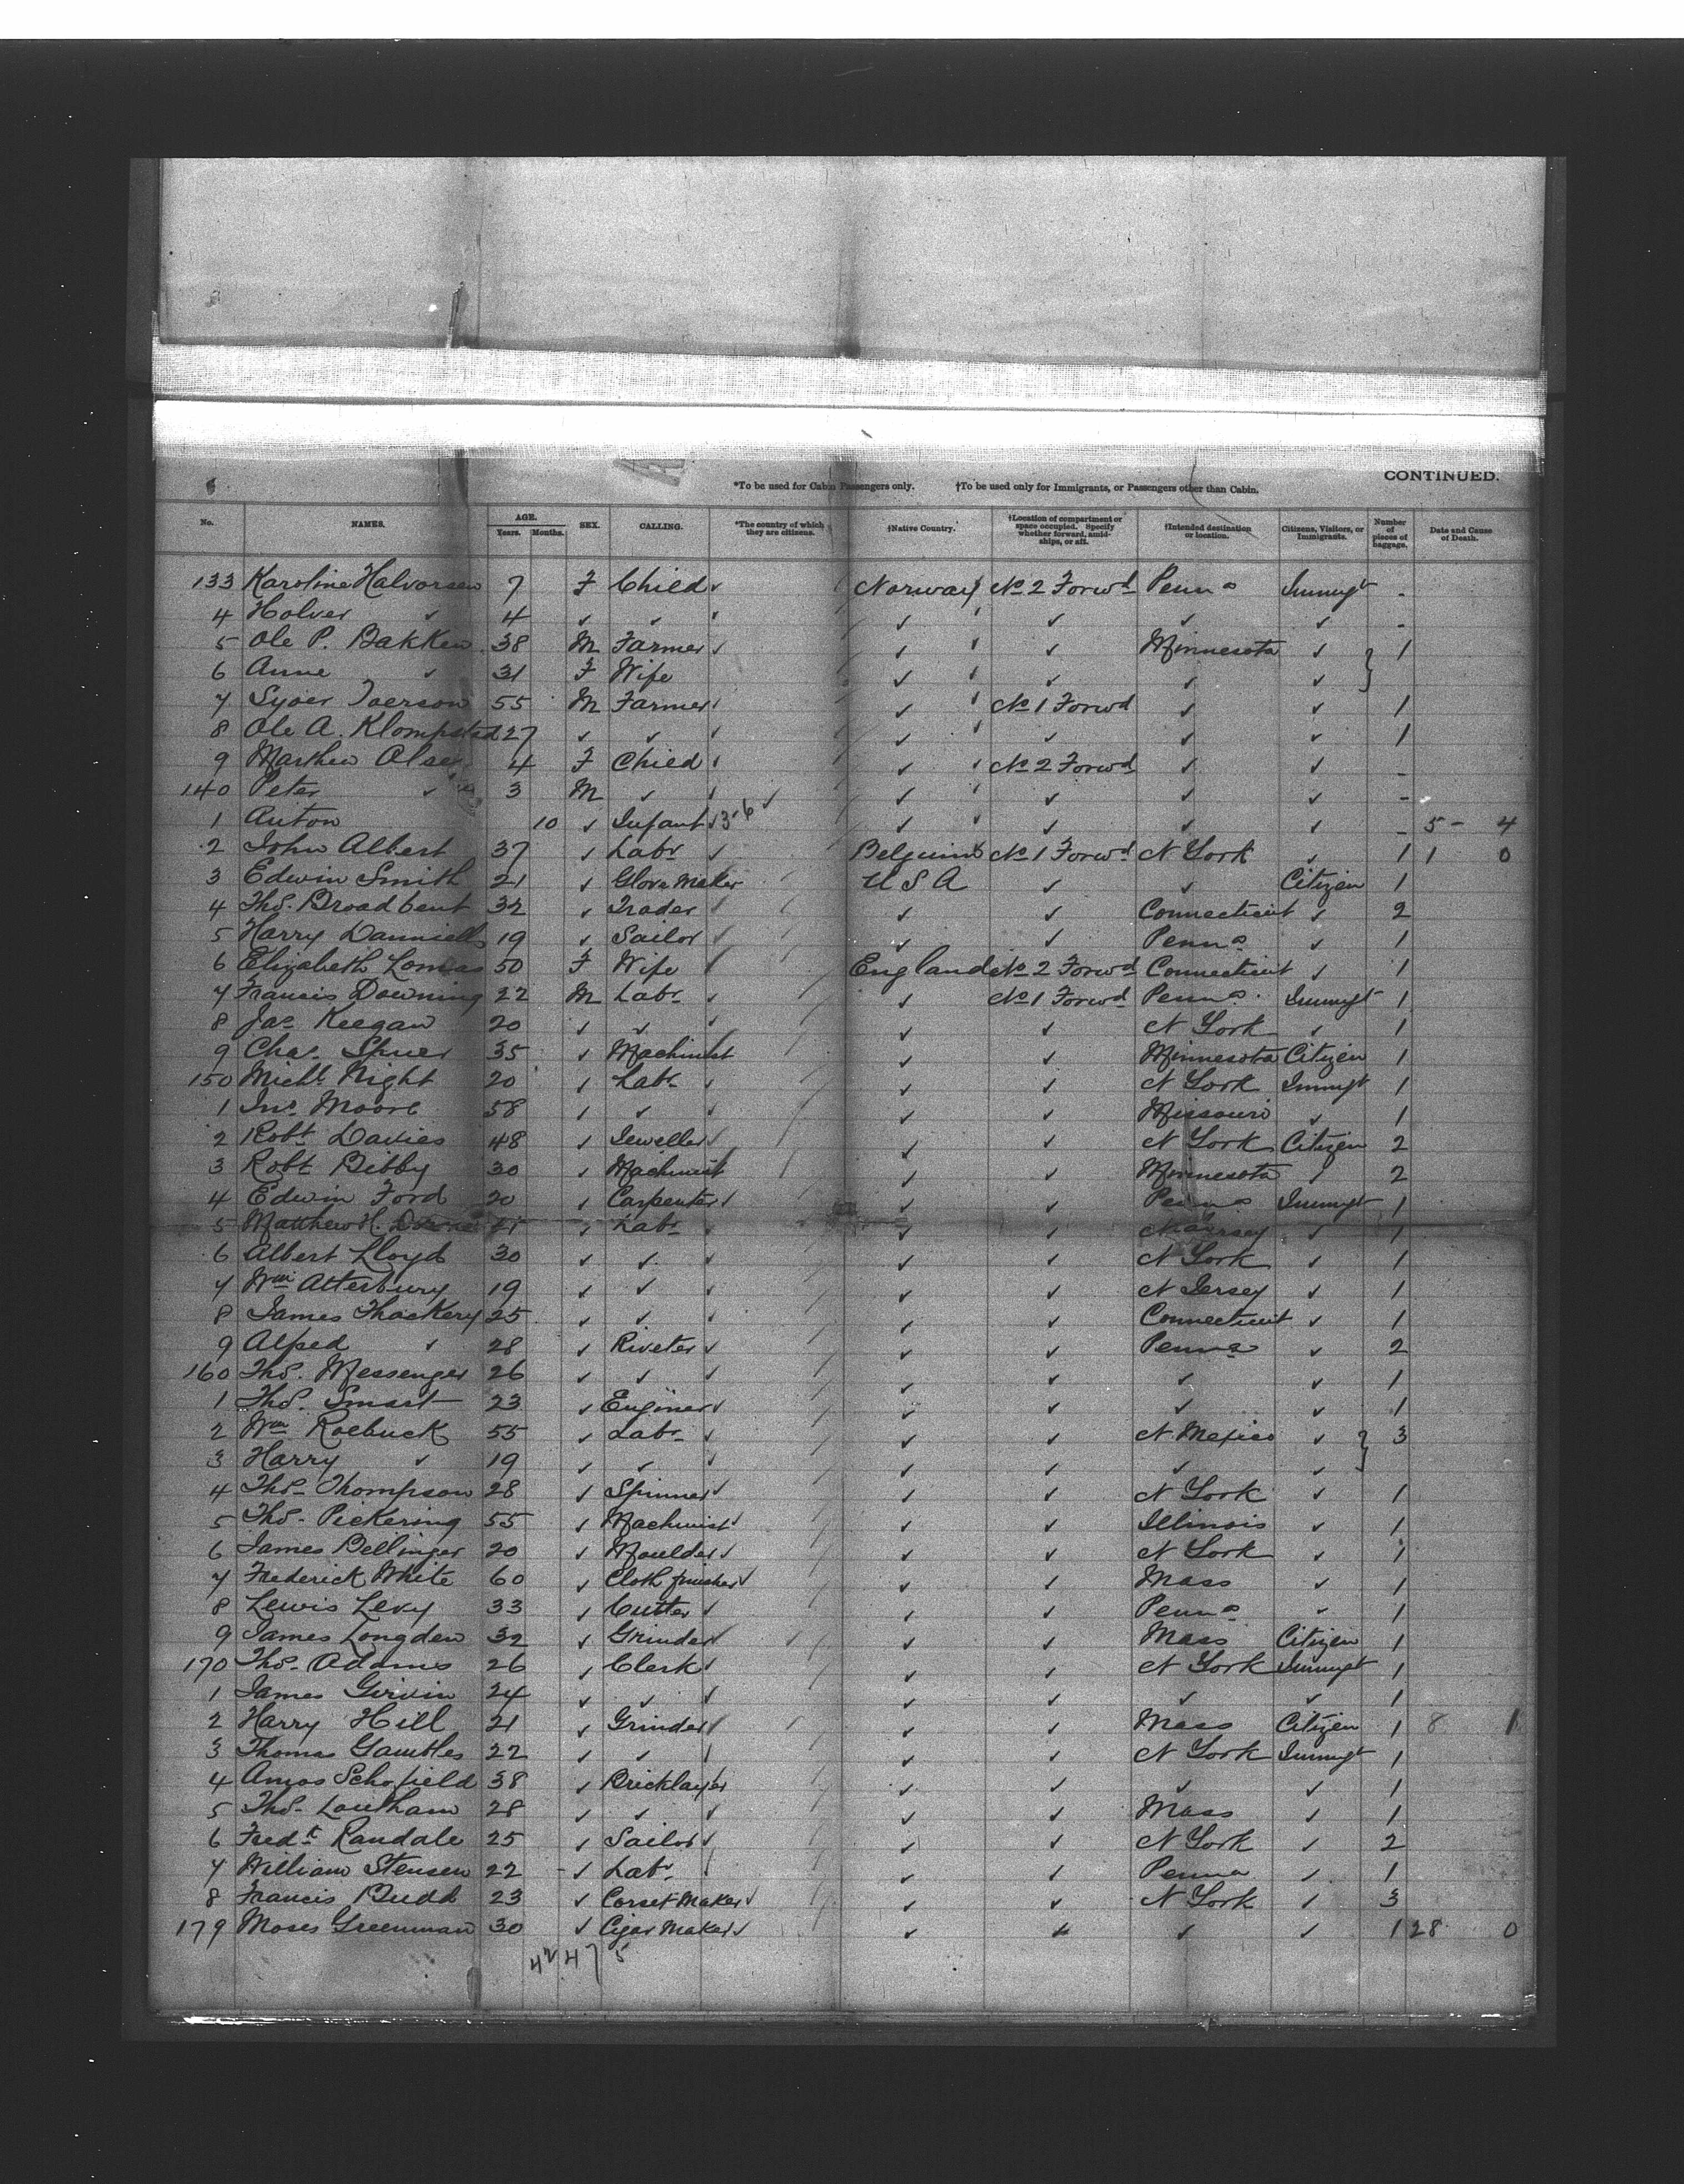 CONTINUED.
*To be used for Cabin Passengers only. †To be used only for Immigrants, or Passengers other than Cabin.
No. NAMES. AGE. Years. Months. SEX. CALLING. *The country of which they are citizens. †Native Country. †Location of compartment or space occupied. Specify whether forward, amidships, or aft. †Intended destination or location. Citizens, Visitors, or Immigrants. Number of pieces of baggage. Date and Cause of Death.
133 Karoline Halvorsen 7 F Child ✓ Norway No 2 Forwd Penna Immgt -
4 Holver ✓ 4 ✓ ✓ ✓ ✓ ✓ ✓ -
5 Ole P. Bakken 38 M Farmer ✓ ✓ ✓ Minnesota ✓ } 1
6 Anne ✓ 31 F Wife ✓ ✓ ✓ ✓
7 55 M Farmer ✓ No 1 Forwd ✓ ✓ 1
8 Ole A. Klompstad 27 ✓ ✓ ✓ ✓ ✓ ✓ 1
9 Marthew Olsen 4 F Child ✓ No 2 Forwd ✓ ✓ -
140 Peter ✓ 3 M ✓ ✓ ✓ ✓ ✓ ✓ -
1 Anton 10 ✓ Infant ✓ 3-6 ✓ ✓ ✓ ✓ - 5 - 4
2 John Albert 37 ✓ Labr ✓ Belguim No 1 Forwd N York ✓ 1 1 0
3 Edwin Smith 21 ✓ Glove Maker U S A ✓ ✓ Citizen 1
4 Thos. Broadbent 32 ✓ Trader ✓ ✓ ✓ Connecticut ✓ 2
5 Harry Danniells 19 ✓ Sailor ✓ ✓ ✓ Penna ✓ 1
6 Elizabeth Lomas 50 F Wife ✓ England No 2 Forwd Connecticut ✓ 1
7 Francis Downing 22 M Labr ✓ ✓ No 1 Forwd Penna Immgt 1
8 Jas Keegan 20 ✓ ✓ ✓ ✓ ✓ N York ✓ 1
9 Chas. 35 ✓ Machinist ✓ ✓ Minnesota Citizen 1
150 Michl Night 20 ✓ Labr ✓ ✓ ✓ N York Immgt 1
1 Jno Moore 58 ✓ ✓ ✓ ✓ ✓ Missouri ✓ 1
2 Robt Davies 48 ✓ Jeweller ✓ ✓ ✓ N York Citizen 2
3 Robt Bibby 30 ✓ Machinist ✓ ✓ Minnesota ✓ 2
4 Edwin Ford 20 ✓ Carpenter ✓ ✓ ✓ Penna Immgt 1
5 Matthew H. ✓ Labr ✓ ✓ ✓ N Jersey ✓ 1
6 Albert Lloyd 30 ✓ ✓ ✓ ✓ ✓ N York ✓ 1
7 Wm Atterbury 19 ✓ ✓ ✓ ✓ ✓ N Jersey ✓ 1
8 James Thackery 25 ✓ ✓ ✓ ✓ ✓ Connecticut ✓ 1
9 Alfred ✓ 28 ✓ Riveter ✓ ✓ ✓ Penna ✓ 2
160 Thos. Messenger 26 ✓ ✓ ✓ ✓ ✓ ✓ ✓ 1
1 Thos. Smart 23 ✓ Enginer ✓ ✓ ✓ ✓ ✓ 1
2 Wm Roebuck 55 ✓ Labr ✓ ✓ ✓ N. Mexico ✓ } 3
3 Harry ✓ 19 ✓ ✓ ✓ ✓ ✓ ✓ ✓
4 Thos Thompson 28 ✓ Spinner ✓ ✓ ✓ N York ✓ 1
5 Thos. Pickering 55 ✓ Machinist ✓ ✓ ✓ Illinois ✓ 1
6 James Bellinger 20 ✓ Moulder ✓ ✓ ✓ N York ✓ 1
7 Frederick White 60 ✓ Cloth finisher ✓ ✓ ✓ Mass ✓ 1
8 Lewis Levy 33 ✓ Cutter ✓ ✓ ✓ Penna ✓ 1
9 James Longden 32 ✓ Grinder ✓ ✓ ✓ Mass Citizen 1
170 Thos. Adams 26 ✓ Clerk ✓ ✓ ✓ N York Immgt 1
1 James Girvin 24 ✓ ✓ ✓ ✓ ✓ ✓ ✓ 1
2 Harry Hill 21 ✓ Grinder ✓ ✓ ✓ Mass Citizen 1 8 1
3 Thomas Gambles 22 ✓ ✓ ✓ ✓ ✓ N York Immgt 1
4 Amos Schofield 38 ✓ Bricklayer ✓ ✓ ✓ ✓ 1
5 Thos. Loutham 28 ✓ ✓ ✓ ✓ ✓ Mass ✓ 1
6 Fredk Randale 25 ✓ Sailor ✓ ✓ ✓ N York ✓ 2
7 William Stensen 22 ✓ Labr ✓ ✓ ✓ Penna ✓ 1
8 Francis Budd 23 ✓ Corset Maker ✓ ✓ ✓ N York ✓ 3
179 Moses Greenman 30 ✓ Cigar Maker ✓ ✓ ✓ ✓ ✓ 1 28 0
42 47 5